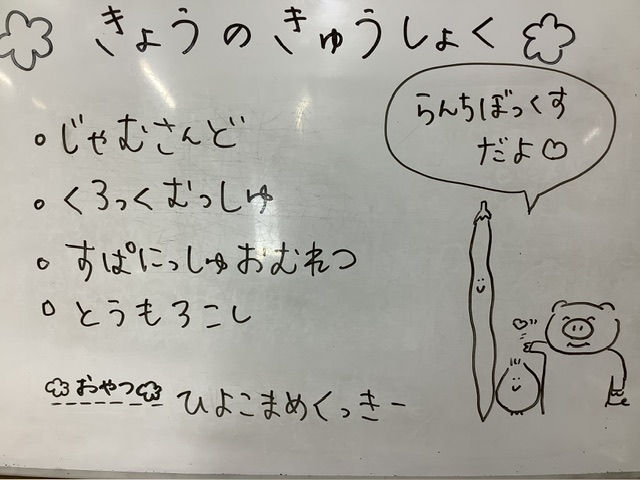 きょうのきゅうしょく
らんちぼっくす
だよ♡
・じゃむさんど
・くろっくむっしゅ
・すぱにっしゅおむれつ
・とうもろこし
おやつ ひよこまめくっきー